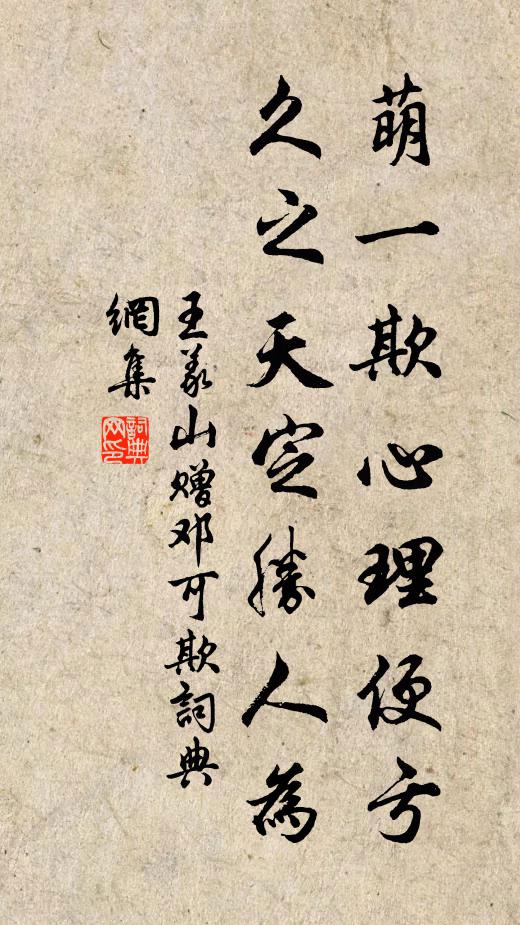 萌一欺心理便亏
久之天定勝人為
王义山赠邓可欺詞典
網集
詞典
网印